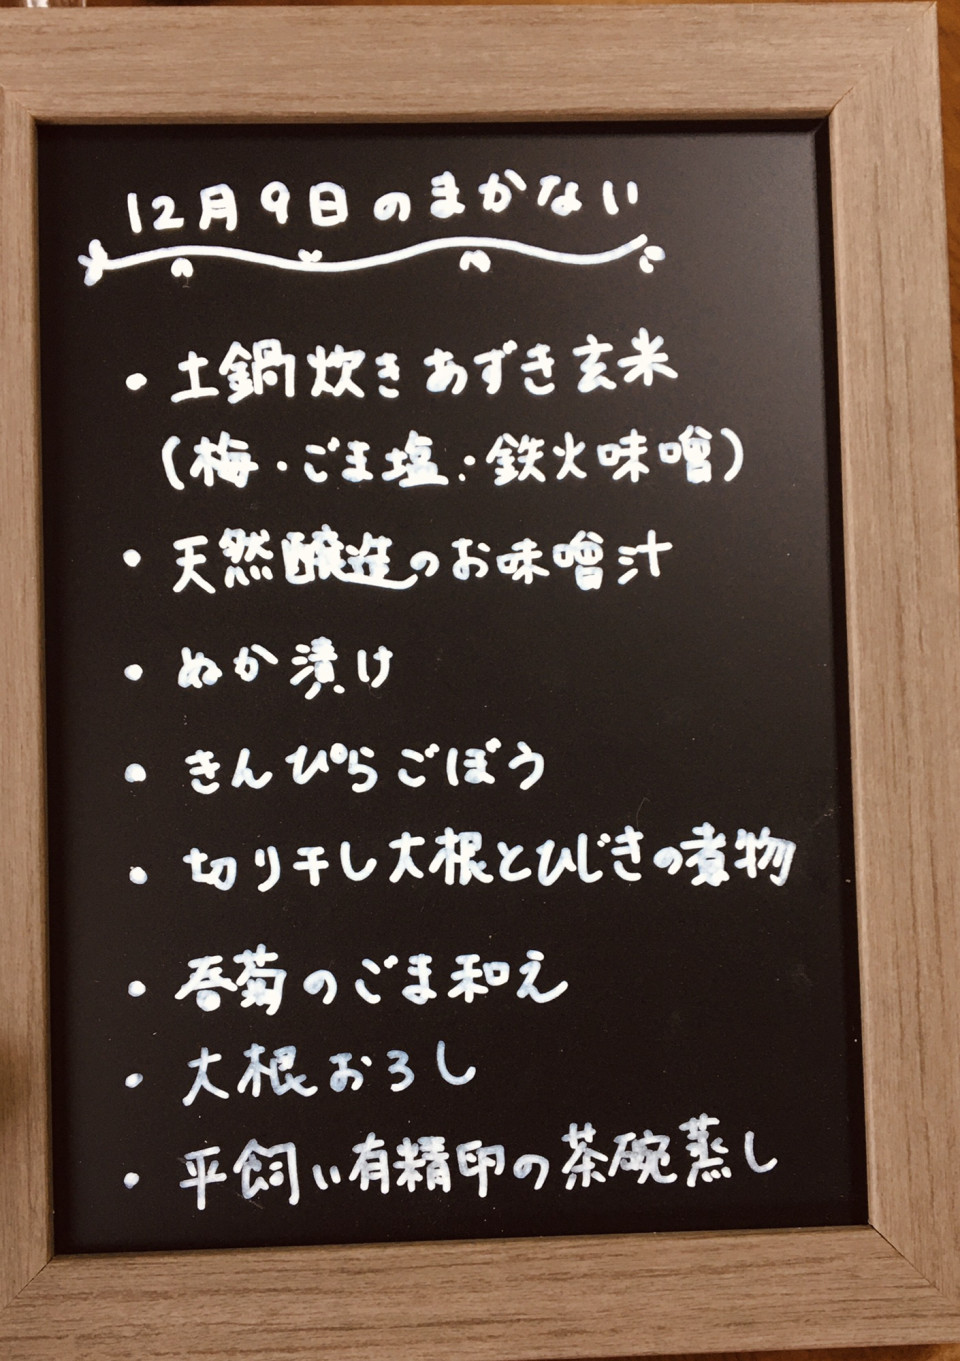 12月9日のまかない
・土鍋炊きあずき玄米
(梅・ごま塩・鉄火味噌)
・天然醸造のお味噌汁
・ぬか漬け
・きんぴらごぼう
・切り干し大根とひじきの煮物
・春菊のごま和え
・大根おろし
・平飼い有精卵の茶碗蒸し